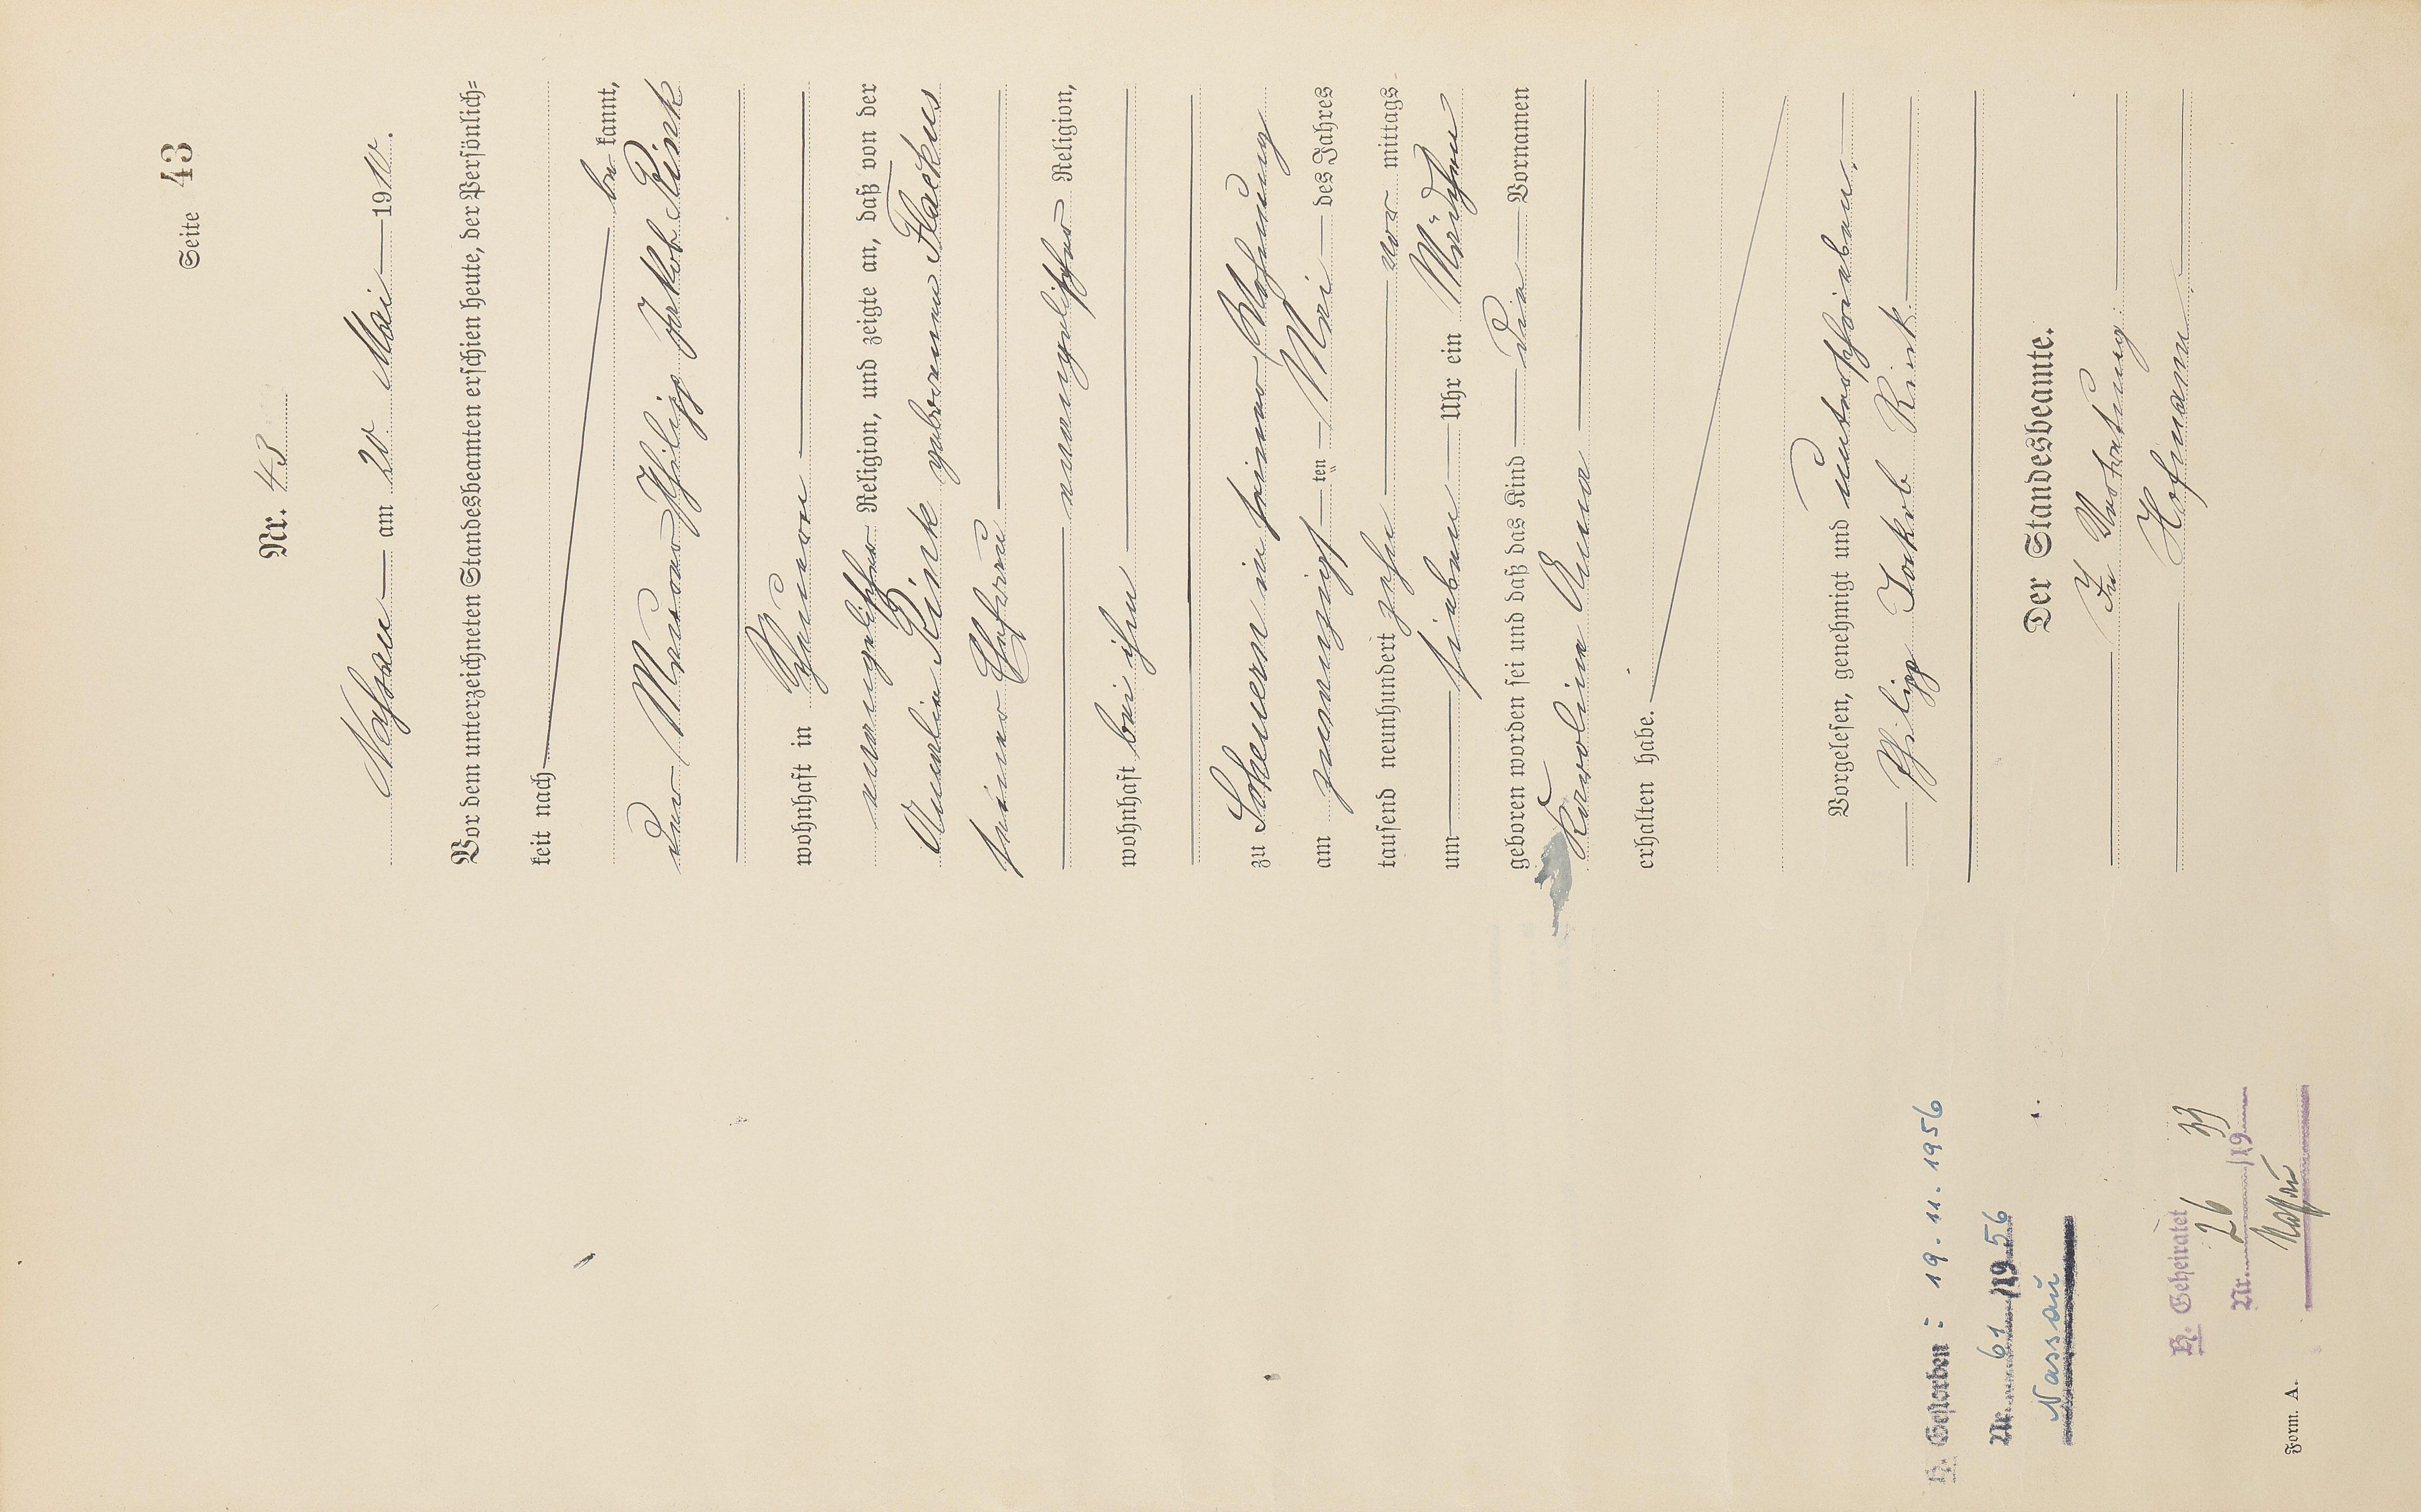 Seite 43
Nr. 43
Nassau am 20 Mai 1910.
Vor dem unterzeichneten Standesbeamten erschien heute, der Persönlich=
keit nach
be kannt,
der Maurer Philipp Jakob Rink
wohnhaft in Scheuern
evangelischer Religion, und zeigte an, daß von der
Amalie Rink geborenen Flackus
seiner Ehefrau
evangelischer Religion,
wohnhaft bei ihm
zu Scheuern in seiner Wohnung
am zwanzigsten Mai des Jahres
tausend neunhundert zehn vor mittags
um sieben Uhr ein Mädchen
geboren worden sei und daß das Kind die Vornamen
Karoline Anna
erhalten habe.
Vorgelesen, genehmigt und unterschrieben.
Philipp Jakob Rink
Der Standesbeamte.
In Vertretung:
Hofmann
H. Gestorben: 19. 11. 1956
Nr. 61 /1956
Nassau
H. Geheiratet
Nr. 26 /1933
Nassau
Form. A.